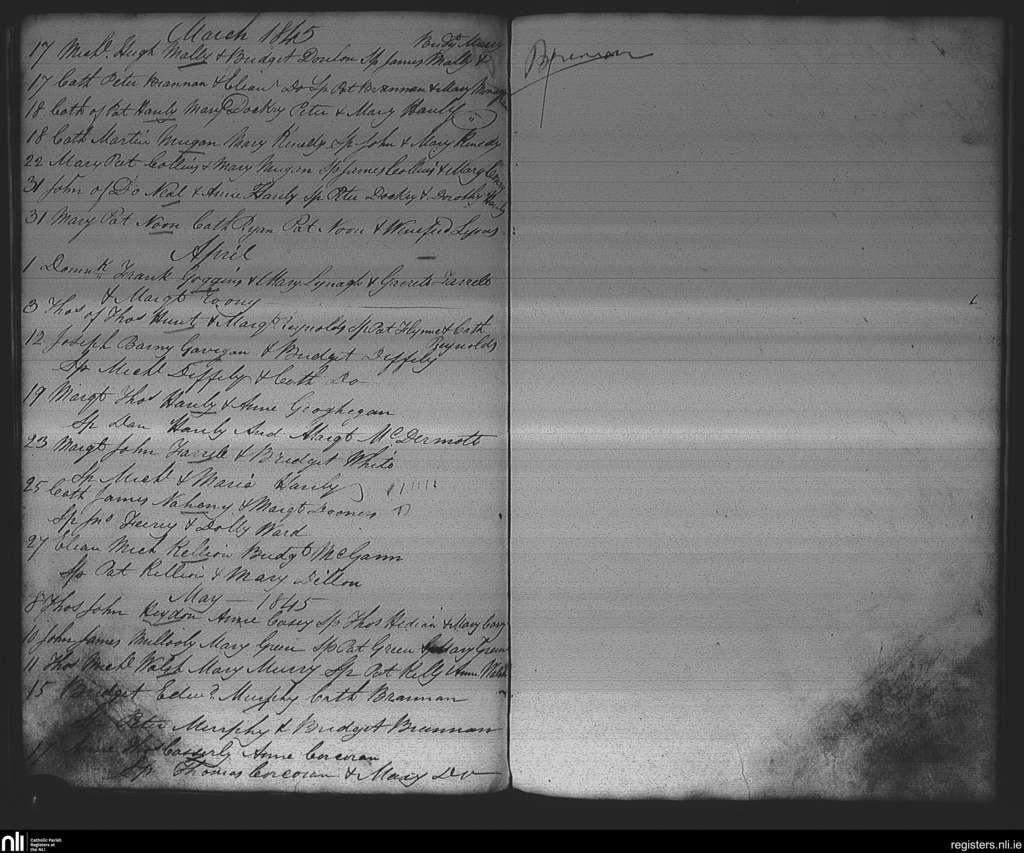 March 1845
Bridgt Murry
17 Michl. Hugh Mally & Bridget Donlon Sp James Mally &
17 Cath Peter Brannan & Elian Do Sp Pat Brannan & Mary
18 Cath of Pat Hanly Mary Dockry Peter & Mary Hanly
18 Cath Martin Mugan Mary Kenedy Sp John & Mary Kenedy
22 Mary Pat Collins & Mary Mugan Sp James Collins & Mary
31 John of Do Neal & Anne Hanly Sp Peter Dockry & Dorothy Hanly
31 Mary Pat Noon Cath Ryan Pat Noon & Winefred Lyons
April
1 Domnk Frank Goggins & Mary Lynagh & Garrett Farrell
& Margt
3 Thos of Thos Hunt & Margt Reynolds Sp Pat Flynn & Cath
Reynolds
12 Joseph Barny Gavigan & Bridget Diffely
Sp Michl Diffely & Cath Do
19 Margt Thos Hanly & Anne Geoghegan
Sp Dan Hanly And Margt McDermott
23 Margt John Farrell & Bridget White
Sp Michl & Maria Hanly
25 Cath James Naheny & Margt
Sp Jno & Dolly Ward
27 Elian Mich Kellion Bridgt McGann
Sp Pat Killion & Mary Dillon
May - 1845
8 Thos John Heydon Anne Casey Sp Thos Hedian & Mary Casey
10 John James Mullooly Mary Green Sp Pat Green & Mary Green
11 Thos Michl Walsh Mary Murry Sp Pat Kelly Anne Walsh
15 Bridget Edwd Murphy Cath Brannan
Sp Peter Murphy & Bridget Brennan
17 Anne Casserly Anne Corcoran
Sp Thomas Corcoran & Mary Do
Brennan
nli Catholic Parish
Registers at
the NLI
registers.nli.ie